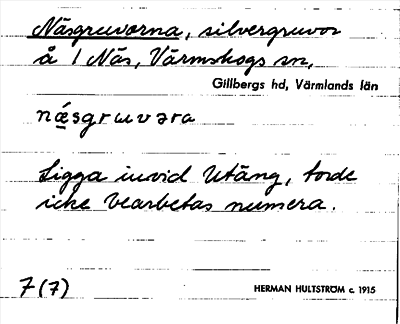 Näsgruvorna, silvergruvor
å 1 Näs, Värmskogs sn,
Gillbergs hd, Värmlands län
næ̀sgruvəra
Ligga invid Utäng, torde
icke bearbetas numera.
7(7)
HERMAN HULTSTRÖM c. 1915